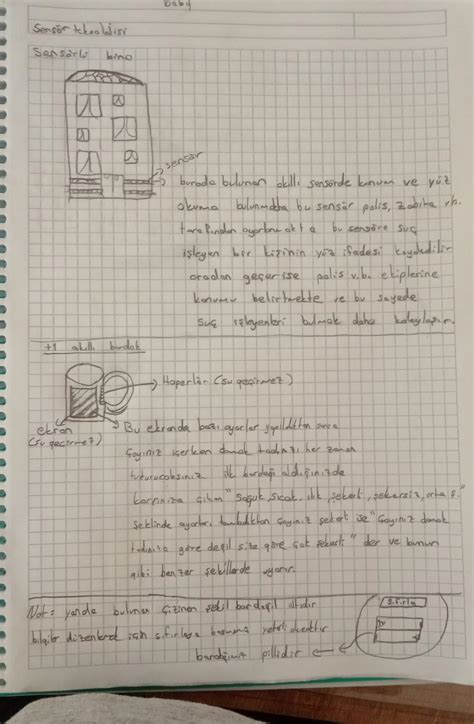 baby
Sensör teknolojisi
Sensörlü bina
sensör
burada bulunan akıllı sensörde konum ve yüz
okuma bulunmakta bu sensör polis, zabıta vb.
tarafından ayarlanmakta bu sensöre suç
işleyen bir kişinin yüz ifadesi kaydedilir
oradan geçerise polis v.b. ekiplerine
konumu belirtmekte ve bu sayede
suç işleyenleri bulmak daha kolaylaşır.
+1 akıllı bardak
Hoperlör (su geçirmez)
ekran
(su geçirmez)
Bu ekranda bazı ayarlar yapıldıktan sonra
Çayınız içerken damak tadınızı her zaman
tutturucaksınız ilk bardağı aldığınızda
karşınıza çıkan "Soğuk, sıcak, ılık şekerli, şekersiz, orta ş."
Şeklinde ayarları tamladıktan çayınız şekerli ise "Çayınız damak
tadınıza göre değil size göre çok şekerli" der ve bunun
gibi benzer şekillerde uyarır.
Not: yanda bulunan çizinen şekil bardağın altıdır
bilgiler düzenlemek için sıfırlaya basmanız yeterli olucaktır
Sıfırla
bardağımız pillidir